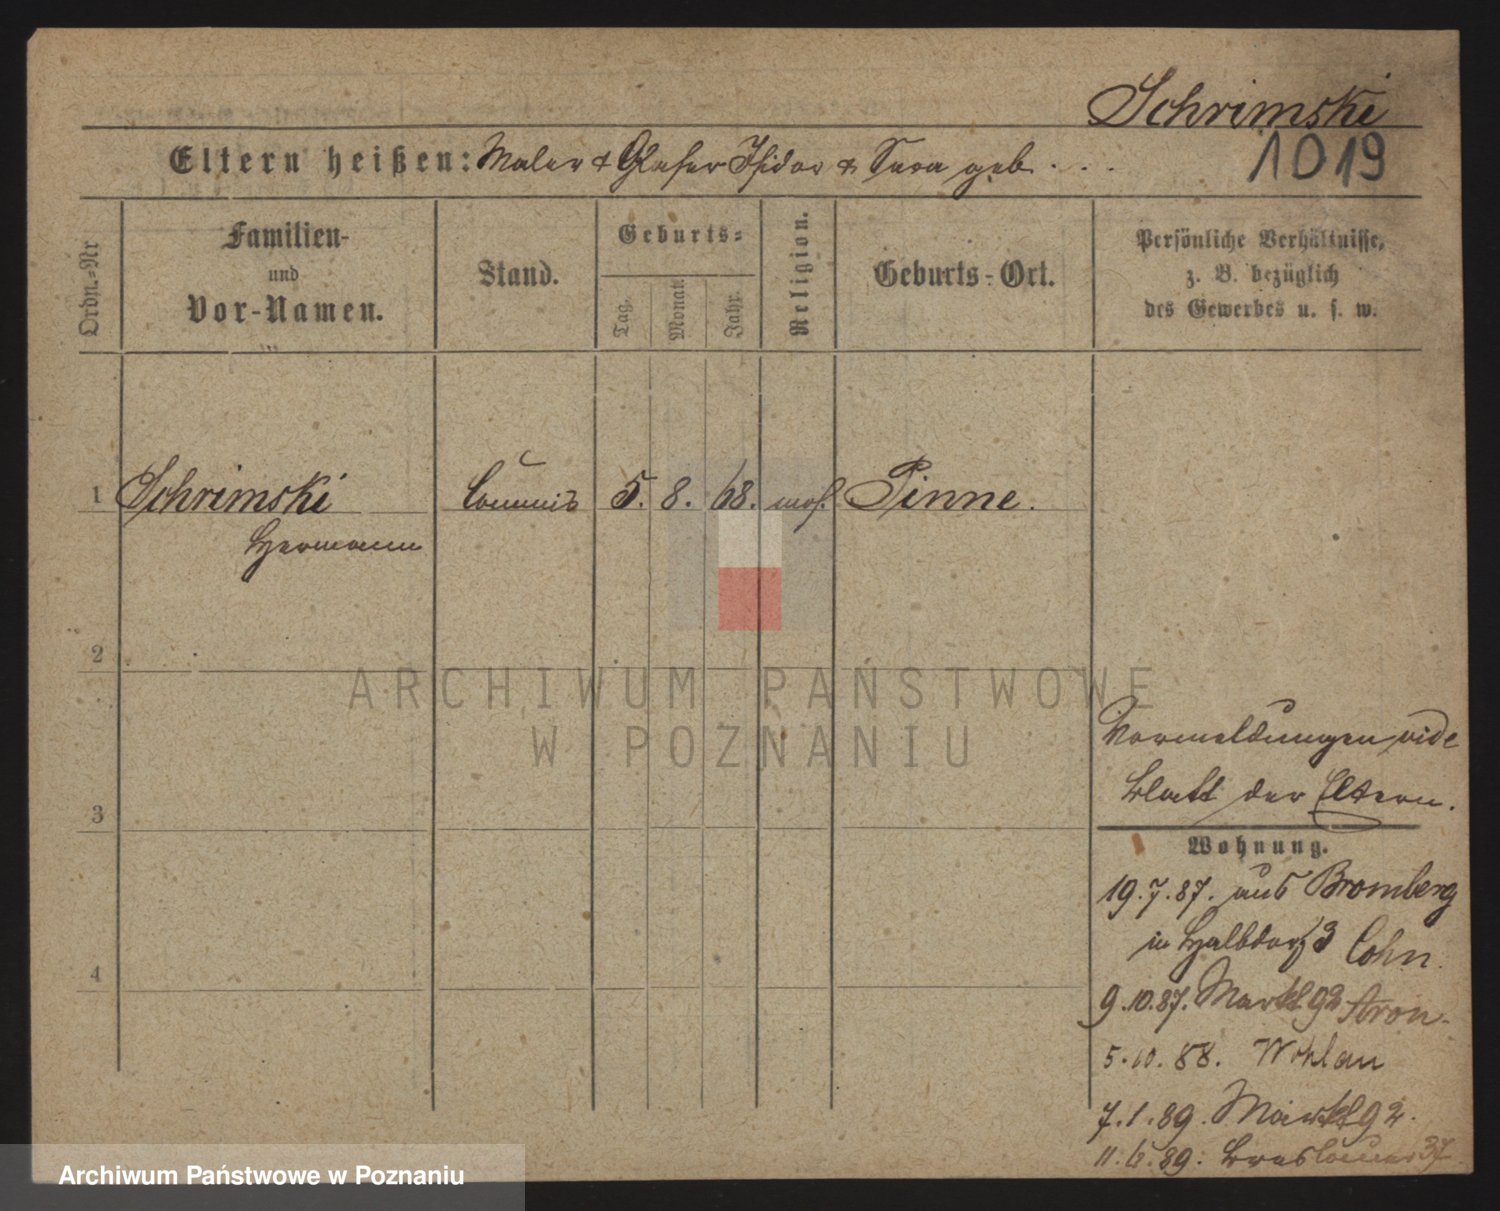 Schrimski
1019
Eltern heißen: Maler & Glaser Isidor & Sara geb. . . .
Ordn.-Nr
Familien-
und
Vor-Namen.
Stand.
Geburts-
Tag.
Monat.
Jahr.
Religion.
Geburts-Ort.
Persönliche Verhältnisse,
z. B. bezüglich
des Gewerbes u. s. w.
1 Schrimski Commis 5. 8. 68. mos. Pinne.
Hermann
2
ARCHIWUM PAŃSTWOWE
W POZNANIU
Vormeldungen vide
Blatt der Eltern.
3
Wohnung.
19.7.87. aus Bromberg
in Halbdorf 3 Cohn.
4
9.10.87. Markt 92 Aron.
5.10.88. Wohlau
7.1.89. Markt 92.
11.6.89. Breslauer 37
Archiwum Państwowe w Poznaniu